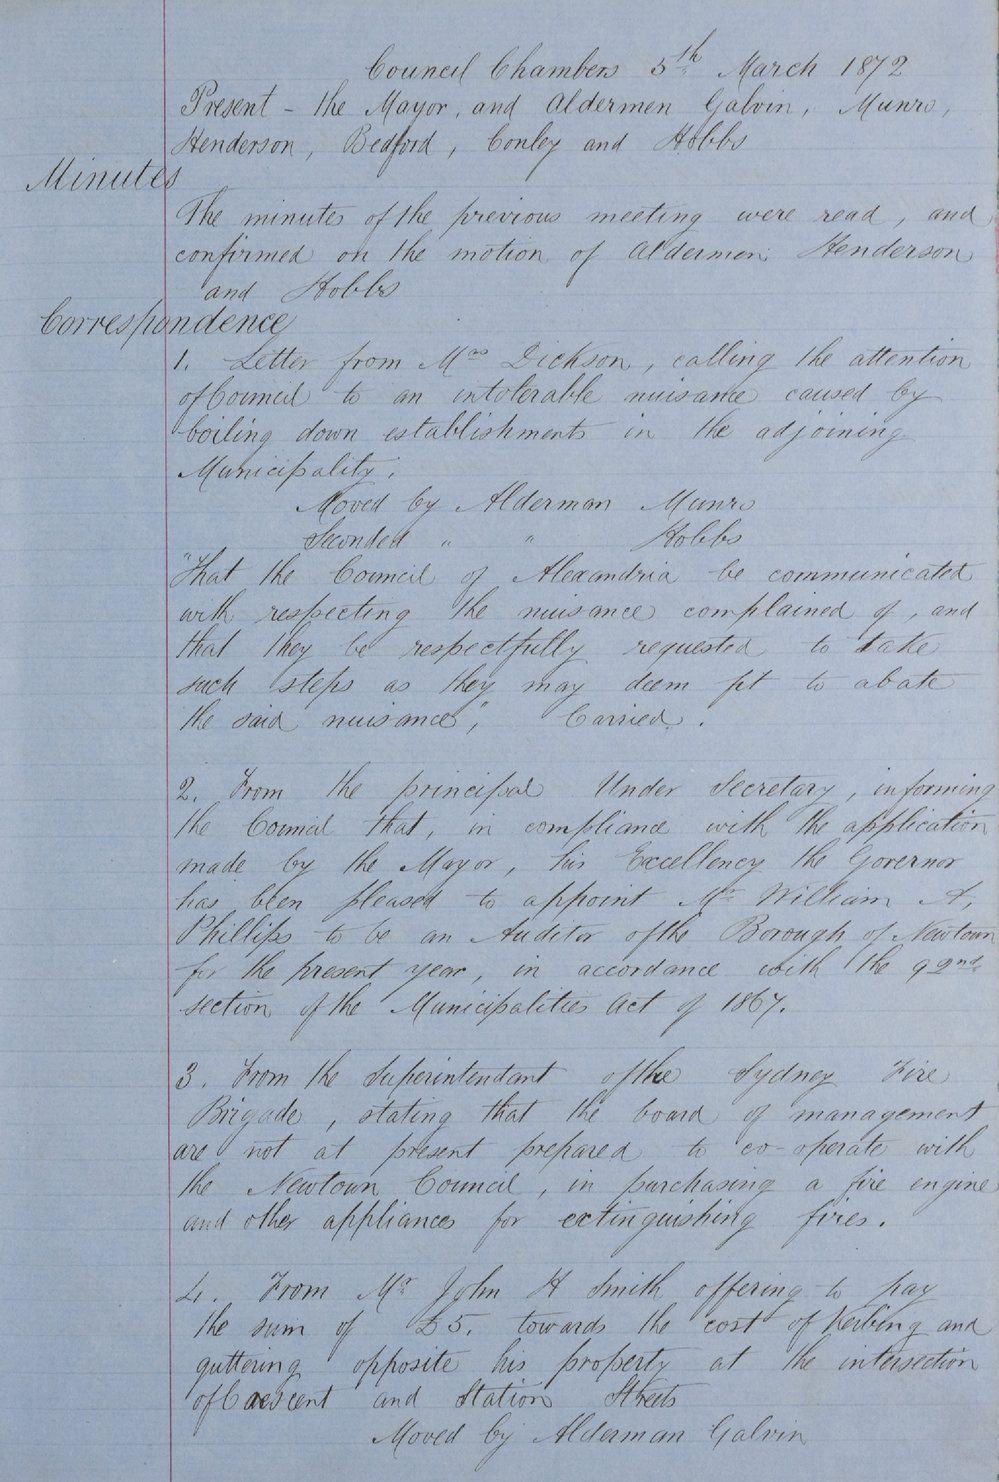 Council Chambers 5th March 1872
Present - the Mayor, and Aldermen Galvin, Munro,
Henderson, Bedford, Conley and Hobbs
Minutes
The minutes of the previous meeting were read, and
confirmed on the motion of Aldermen Henderson
and Hobbs
Correspondence
1. Letter from Mrs Dickson, calling the attention
of Council to an intolerable nuisance caused by
boiling down establishments in the adjoining
Municipality.
Moved by Alderman Munro
Seconded " " Hobbs
"That the Council of Alexandria be communicated
with respecting the nuisance complained of, and
that they be respectfully requested to take
such steps as they may deem fit to abate
the said nuisance", Carried.
2. From the principal Under Secretary, informing
the Council that, in compliance with the application
made by the Mayor, his Excellency the Governor
has been pleased to appoint Mr William A.
Phillips to be an Auditor of the Borough of Newtown
for the present year, in accordance with the 92nd
section of the Municipalities Act of 1867.
3. From the Superintendant of the Sydney Fire
Brigade, stating that the board of management
are not at present prepared to co-operate with
the Newtown Council, in purchasing a fire engine
and other appliances for extinguishing fires.
4. From Mr John H Smith offering to pay
the sum of £5. towards the cost of kerbing and
guttering opposite his property at the intersection
of Crescent and Station Streets
Moved by Alderman Galvin